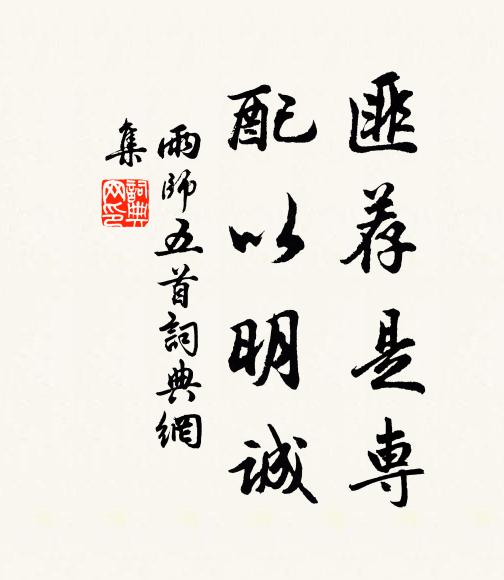 匪荐是専
配以明誠
雨師五首詞典網
集
詞典
网印